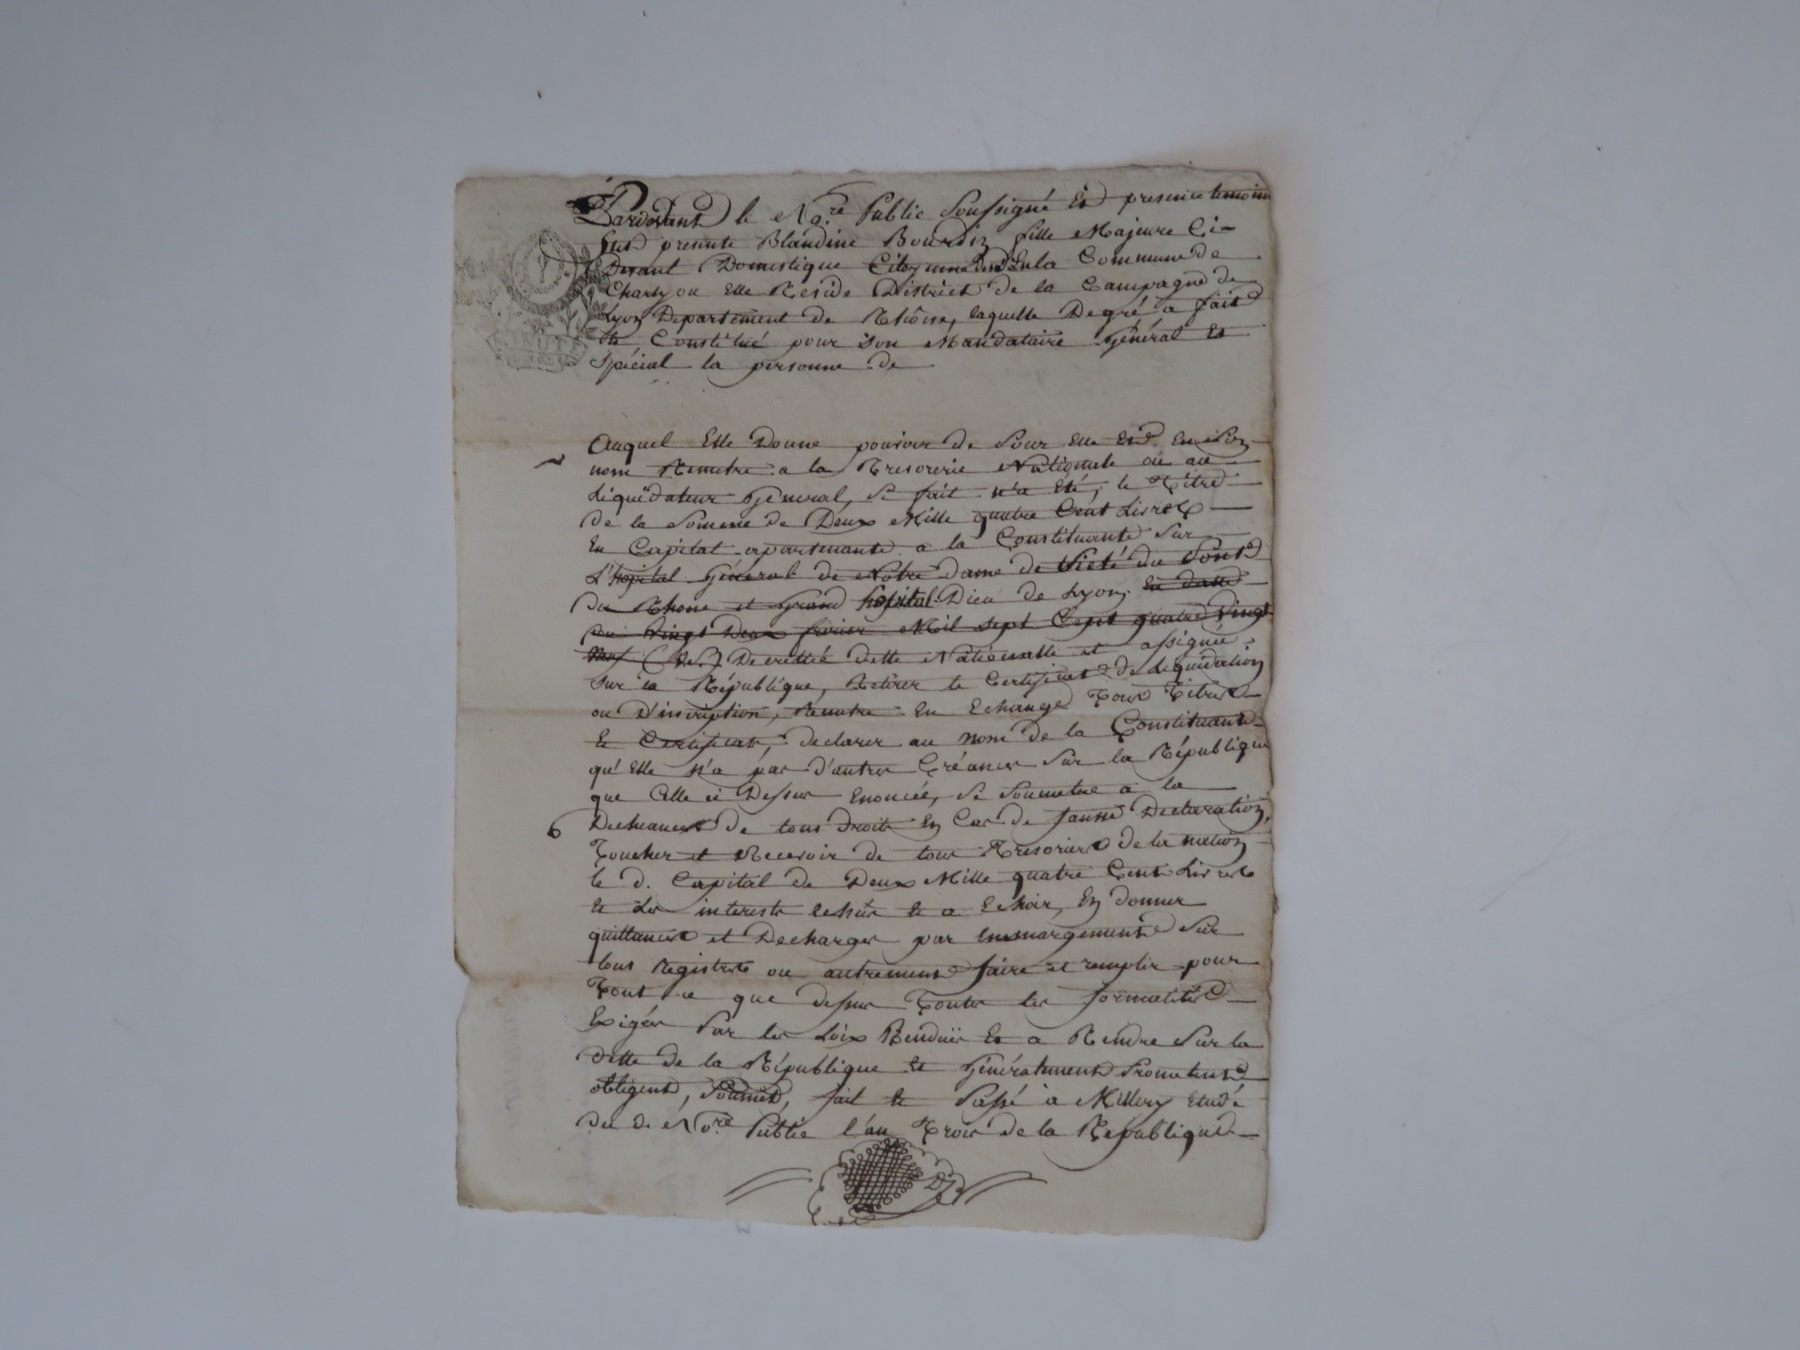 Pardevant le No.re Public Soussigné Et presence temoins
fut presente Blandine Bourdin fille Majeure Ci-
Devant Domestique Citoyenne de la Commune de
Charly ou Elle Reside District de la Campagne de
Lyon Departement de Rhône, laquelle De gré a fait
Et Constitué pour son Mandataire Général Et
Spécial la personne de
Auquel Elle Donne pouvoir de Pour Elle Et En Son
nom Remettre a la Tresorerie Nationale ou au
Liquidateur General, Si fait n'a Eté, le Titre
de la Somme de Deux Mille quatre Cent Livres
En Capital apartenante a la Constituante Sur
L'hopital General de Notre dame de Pieté du Pont
du Rhone et Grand hopital Dieu de Lyon. En datte
du Vingt Deux fevrier Mil sept Cent quatre Vingt
Neuf Decretée dette Nationalle et assignée
Sur la République, Retirer le Certificat de Liquidation
ou D'inscription, Remettre En Echange Tous Titres
Et Certificats, declarer au nom de la Constituante
qu'Elle n'a pas d'autres Créances Sur la République
que Celle ci Dessus Enoncée, Se Soumettre a la
6 Decheance de tous droits En Cas de fausse Declaration,
Toucher et Recevoir de tous Tresoriers de la nation
le d. Capital de Deux Mille quatre Cent Livres
Et Les interests Echus Et a Echoir, En donner
quittances et Decharges par Emmargement Sur
tous Registres ou autrement faire et remplir pour
Tout ce que dessus Toutes les formalités
Exigés Par les Loix Renduës Et a Rendre Sur la
dette de la République Et Généralement Promettant
obligent, Soumet, fait Et Passé à Millery Etude
du d. No.re Public l'an Trois de la République